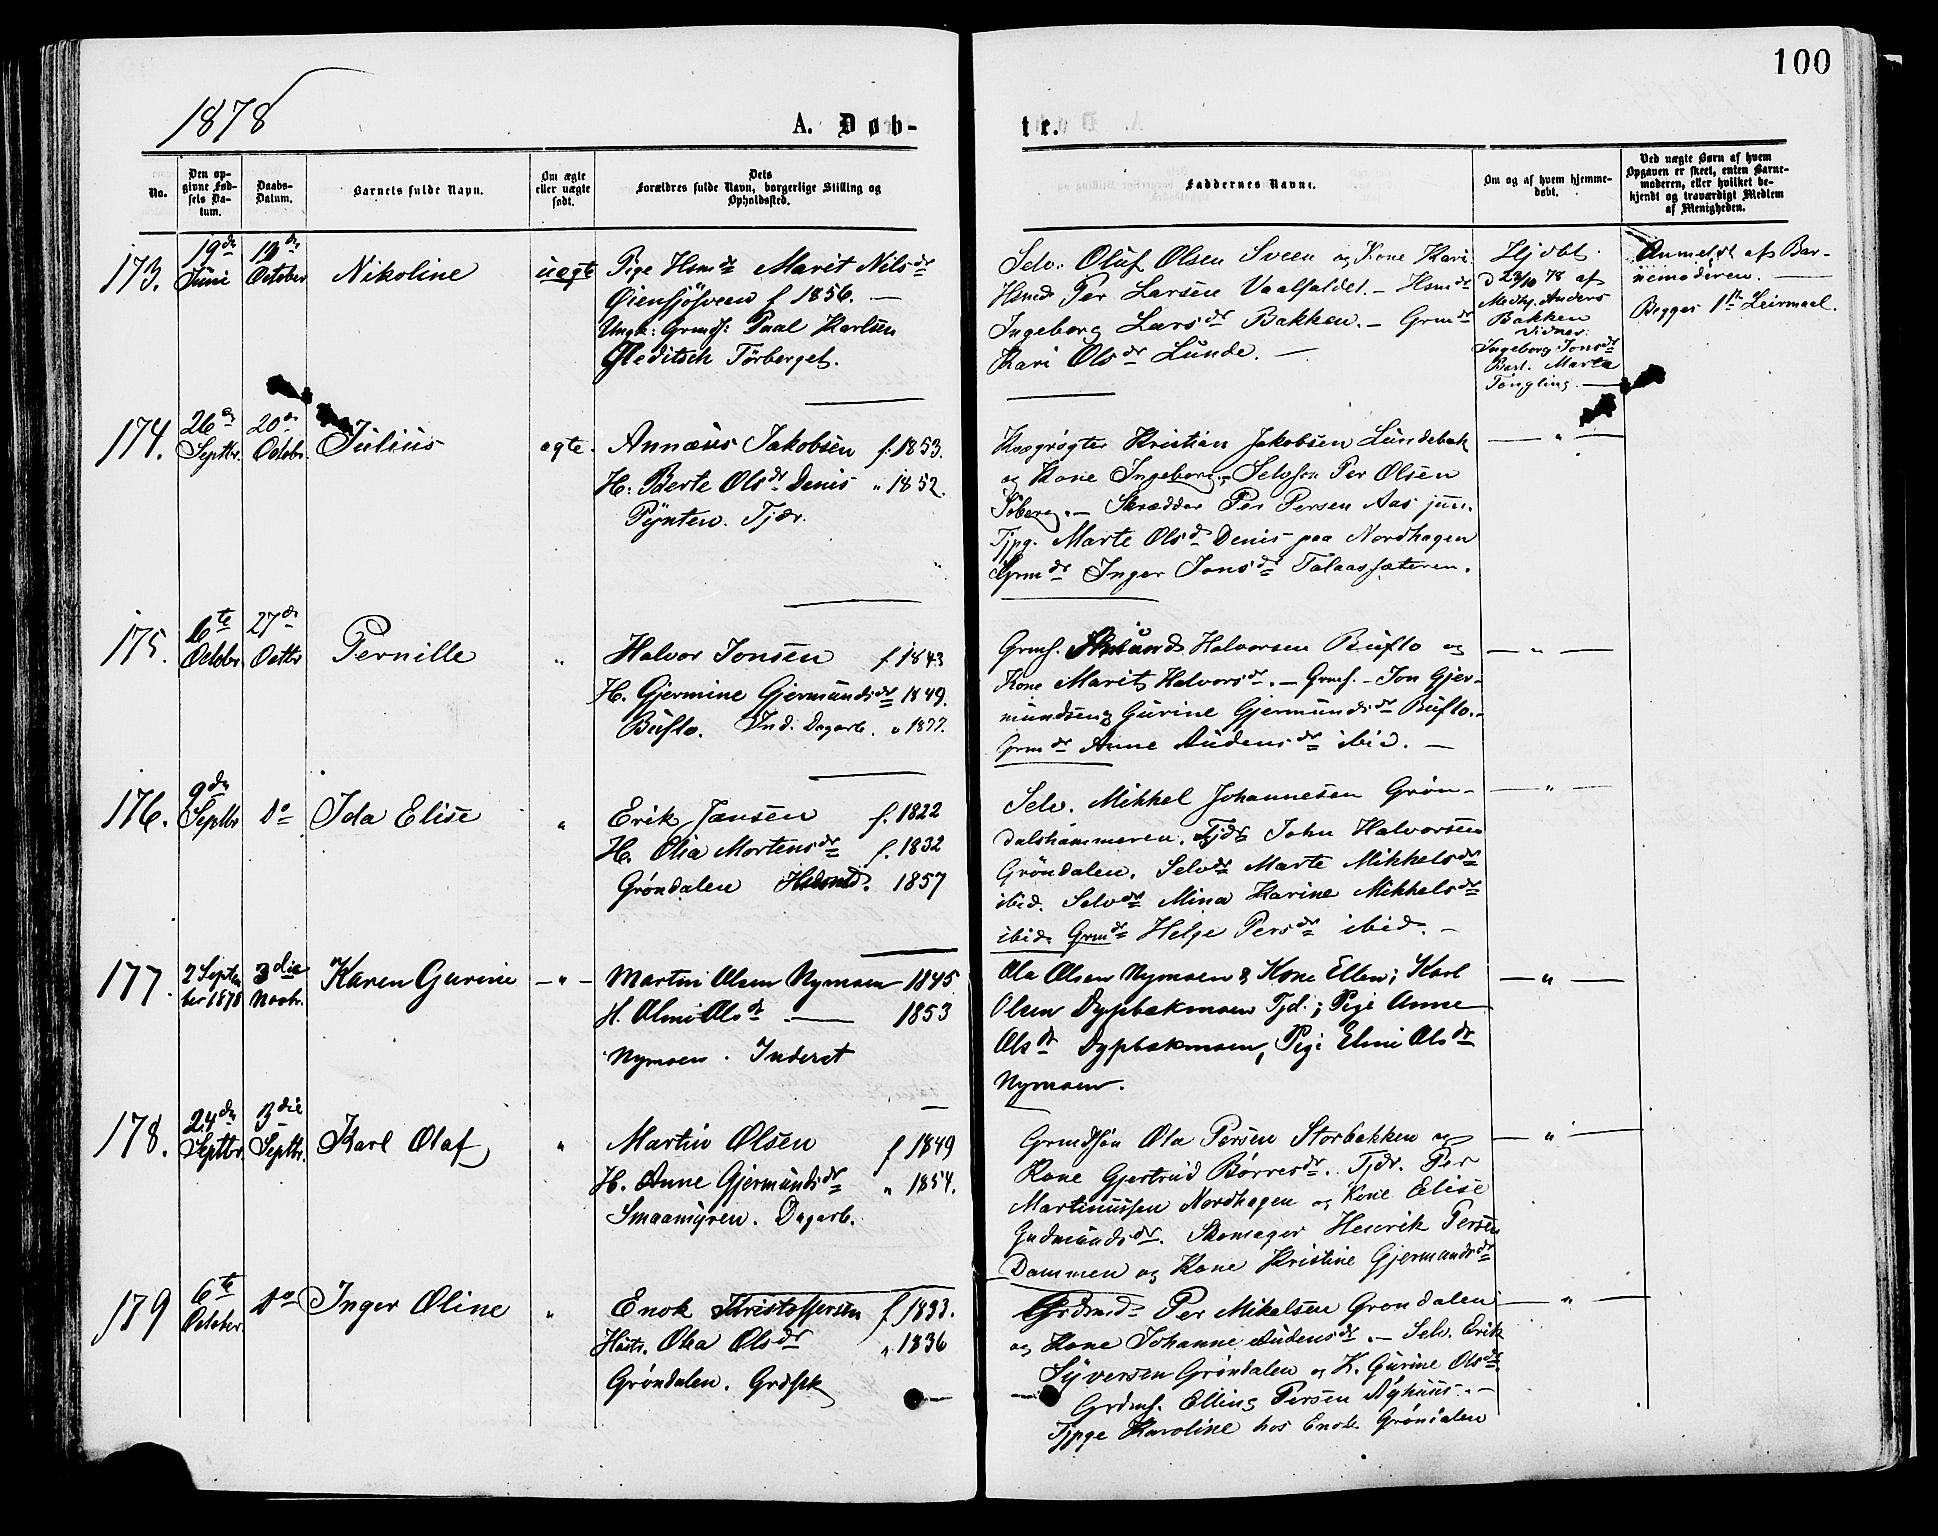 100
1878
A. Døb-
te.
No.
Den op-
givne Fød-
sels Da-
tum.
Daabs-
Datum.
Barnets fulde Navn.
Om ægte
eller uægte
født.
Dets
Forældres fulde Navn, borgerlige Stilling og
Opholdssted.
Faddernes Navne.
Om og af hvem hjemme-
døbt.
Ved uægte Børn af hvem
Opgaven er skeet, enten Barne-
moderen, eller hvilket be-
kjendt og troværdigt Medlem
af Menigheden.
173.
19de
Juni
October
Nikoline
uægte
Pige Hsmdr Marit Nilsdr
f 1856. —
Ungk: Grmds: Paal Karlsen
Gleditsch Törberget.
Selv. Oluf Olsen Sveen og Kone Kari
Hsmd Per Larsen Vaalfaldet. — Hsmdr
Ingeborg Larsdr Bakken. — Grmdr
Kari Olsdr Lunde. —
Hjdbt.
d 23/10 78 af
Medhj. Anders
Bakken
Vidner:
Ingeborg Jonsdr
Marta
Tongling. —
Anmeldt af Bar-
nemoderen. —
Begges 1ste Leirmaal.
174.
26de
Septbr.
20de
Octobr.
Julius
ægte.
Annæus Jakobsen f. 1853.
H: Berte Olsdr Denis " 1852.
Pynten. Tjdr.
Kvægrøgter Kristian Jakobsen Lundebak
og Kone Ingeborg. — Selvsøn Per Olsen
Soberg. — Skrædder Per Persen Aas jun.
Tjpg. Marte Olsd Denis paa Nordhagen
Grmdr Inger Jonsdr Talaassæteren.
— " —
175.
6te
Octobr.
27de
Octbr
Pernille
"
Halvor Jonsen f. 1843
H. Gjermine Gjermundsdr 1849.
Buflo. Ind. Dagarb. " 1877.
Grmf. Amund Halvorsen Buflo og
Kone Marit Halvorsdr. — Grmf. — Jon Gjer-
mundsen og Gurine Gjermundsdr Buflo. —
Grmdr Anne Audensdr ibid. —
— " —
176.
9de
Septbr
do
Ida Elise
"
Erik Jansen f. 1822
H. Olia Mortensdr f. 1832
Grøndalen Husmd. 1857
Selv. Mikkel Johannesen Grøn-
dalshammeren. Tjdr John Halvorsen
Gröndalen. Selvdr Marte Mikkelsdr
ibid. Selvdr Mina Karine Mikkelsdr
ibid. Grmdr Helge Persdr ibid. —
— " —
177.
2 Septem
ber 1878
3die
Novbr.
Karen Gurine
— " —
Martin Olsen Nymoen 1845
H. Olmi Olsdr —— 1853
Nymoen. Inderst
Ola Olsen Nymoen & Kone Ellen; Karl
Olsen Dypbækmoen Tjd.; Pige Anne
Olsdr Dypbækmoen, Pige Elmi Olsdr
Nymoen.
— " —
178.
24de
Septbr.
3die
Septbr.
Karl Olaf
"
Martin Olsen f 1849
H. Anne Gjermundsdr " 1854.
Smaamyren. Dagarb.
Grmdsøn Ola Persen Storbakken og
Kone Gjertrud Börresdr. Tjdr. Per
Martinussen Nordhagen og Kone Elise
Gudmundsdr. Skomager Henrik Persen
Dammen og Kone Kristine Gjermundsdr
— " —
179
6te
October
do
Inger Oline
"
Enok Kristoffersen f 1833.
Hustr. Olea Olsdr " 1836
Gröndalen.
Grdmd. Per Mikelsen Grøndalen
og Kone Johanne Audensdr. — Selv. Erik
Syversen Gröndalen og K. Gurine Olsdr
Grdmf. Elling Persen Nyhuus. —
Tjpge Karoline hos Enok Gröndalen
— " —